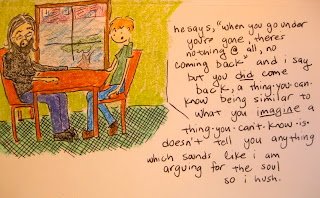 he says, "when you go under
you're gone, theres
nothing @ all, no
coming back" and i say
but you did come
back, a thing·you·can·
know being similar to
what you imagine a
thing·you·can't·know·is·
doesn't tell you anything
which sounds like i am
arguing for the soul
so i hush.